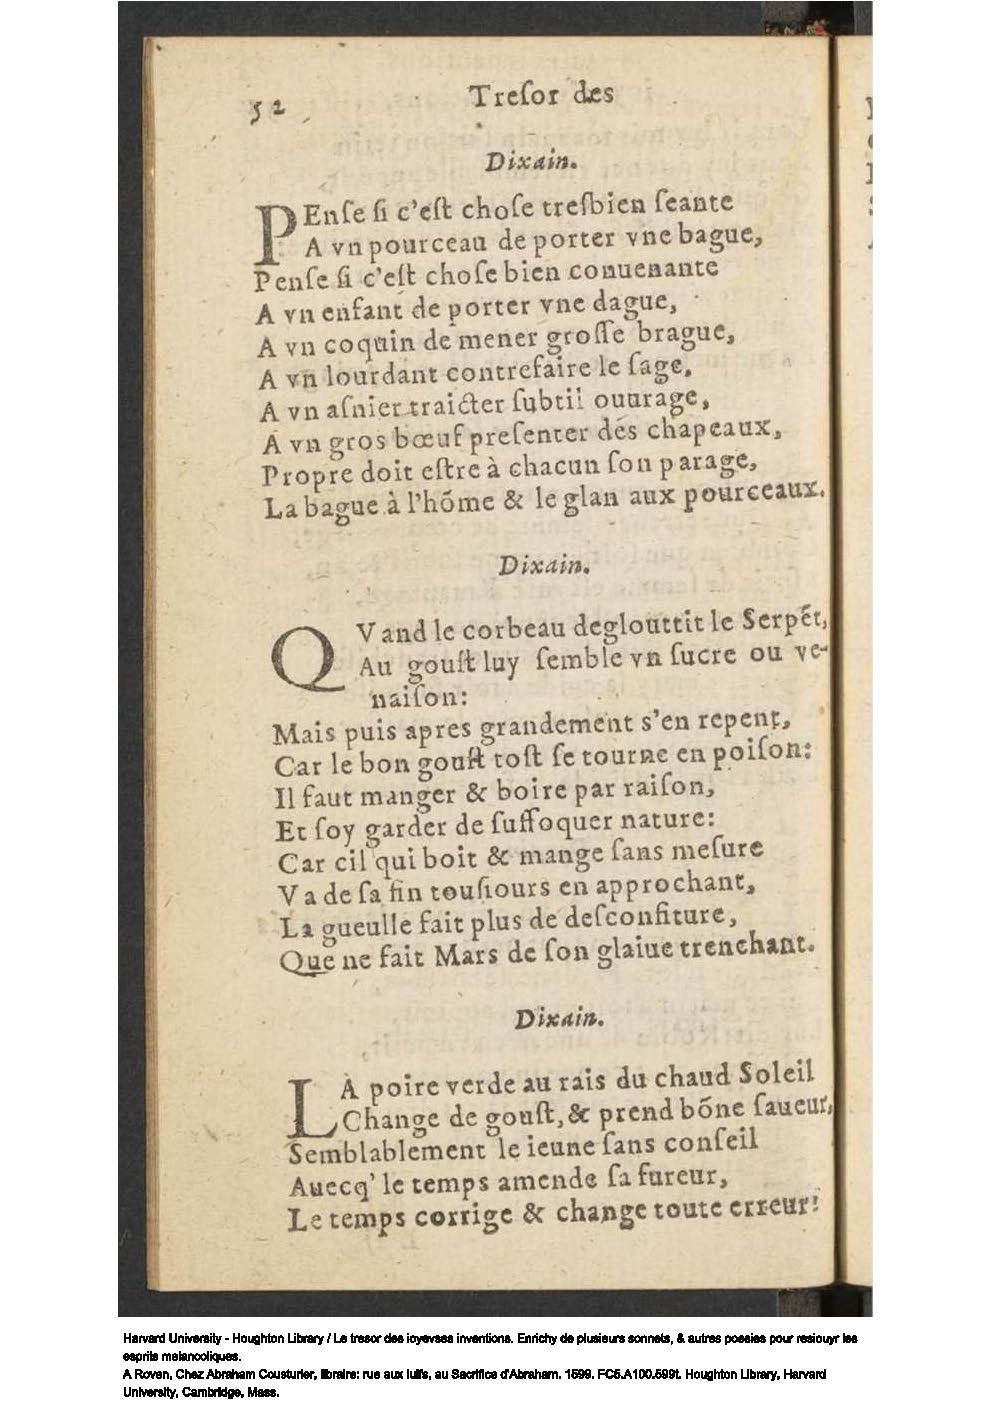 52 Treſor des
Dixain.
PEnſe ſi c'eſt choſe tresbien ſeante
A vn pourceau de porter vne bague,
Penſe ſi c'eſt choſe bien conuenante
A vn enfant de porter vne dague,
A vn coquin de mener groſſe brague,
A vn lourdant contrefaire le ſage,
A vn aſnier traicter ſubtil ouurage,
A vn gros bœuf preſenter des chapeaux,
Propre doit eſtre à chacun ſon parage,
La bague à l'hõme & le glan aux pourceaux.
Dixain.
QVand le corbeau deglouttit le Serpẽt,
Au gouſt luy ſemble vn ſucre ou ve-
naiſon:
Mais puis apres grandement s'en repent,
Car le bon gouſt toſt ſe tourne en poiſon:
Il faut manger & boire par raiſon,
Et ſoy garder de ſuffoquer nature:
Car cil qui boit & mange ſans meſure
Va de ſa fin touſiours en approchant,
La gueulle fait plus de deſconfiture,
Que ne fait Mars de ſon glaiue trenchant.
Dixain.
LA poire verde au rais du chaud Soleil
Change de gouſt, & prend bõne ſaueur,
Semblablement le ieune ſans conſeil
Auecq' le temps amende ſa fureur,
Le temps corrige & change toute erreur:
Harvard University - Houghton Library / Le tresor des ioyevses inventions. Enrichy de plusieurs sonnets, & autres poesies pour resiouyr les
esprits melancoliques.
A Roven, Chez Abraham Cousturier, libraire: rue aux Iuifs, au Sacrifice d'Abraham. 1599. FC5.A100.599t. Houghton Library, Harvard
University, Cambridge, Mass.